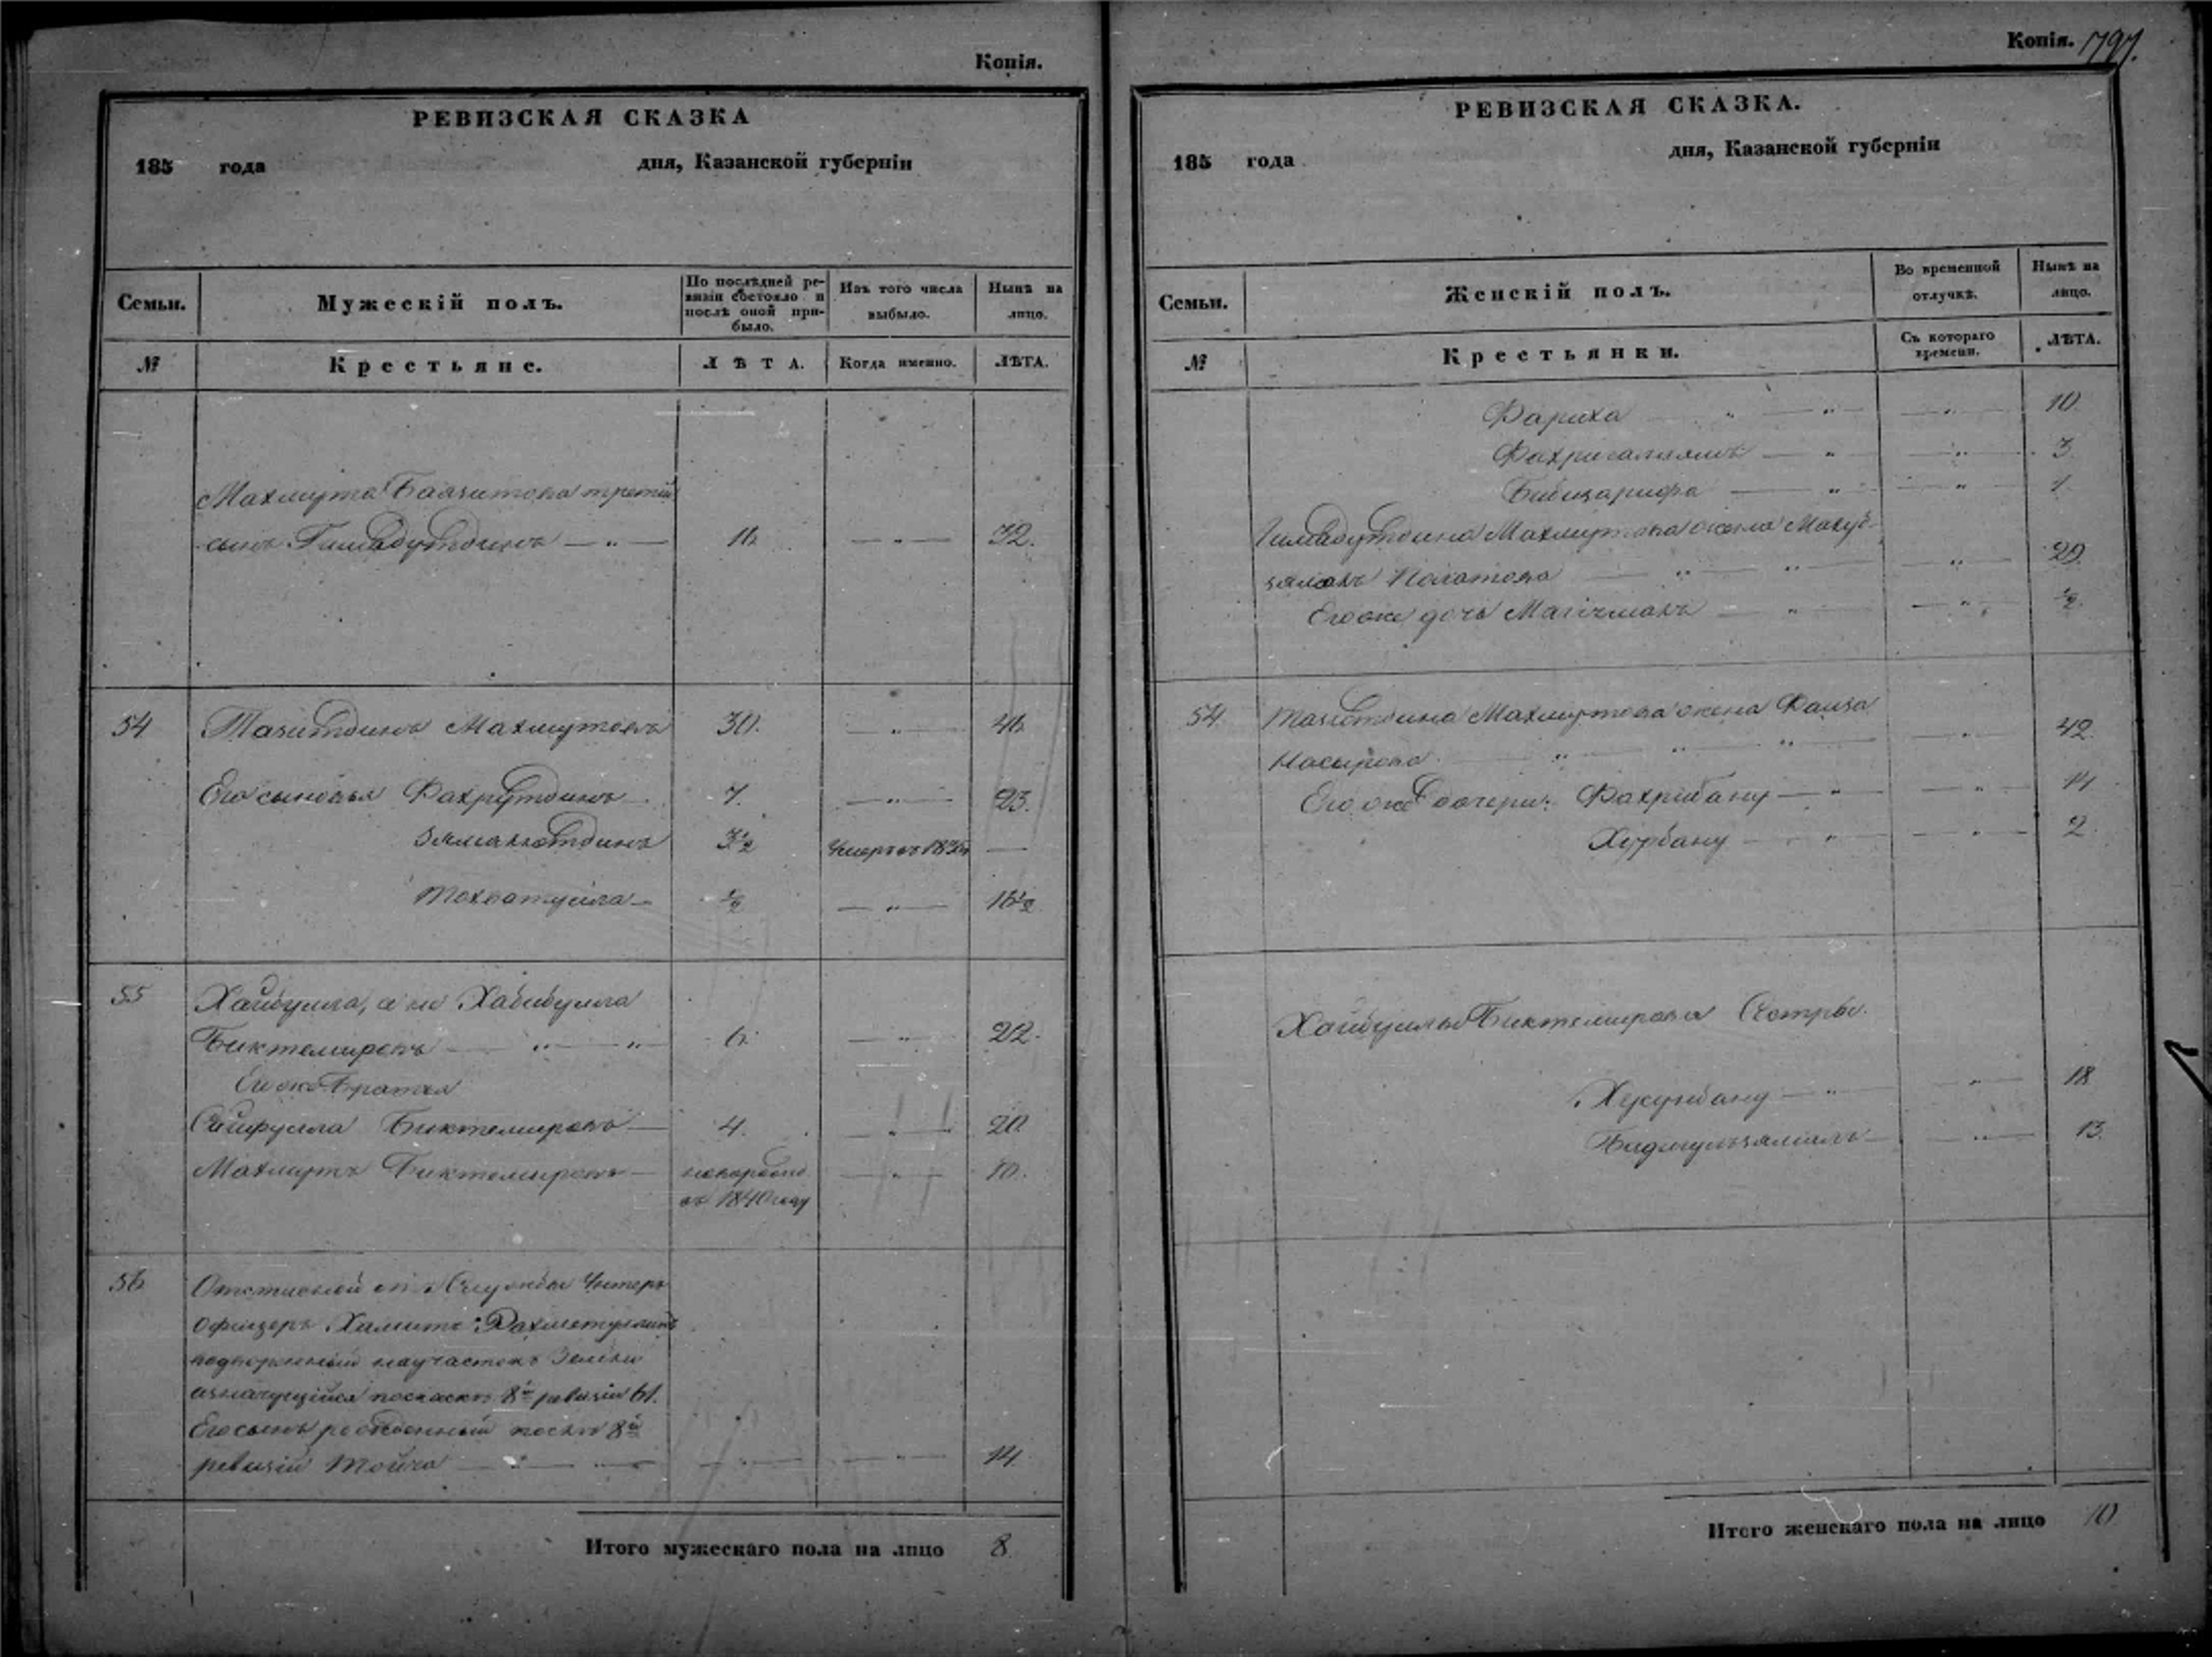 Копія.
РЕВИЗСКАЯ СКАЗКА
185 года дня, Казанской губерніи
Семьи. Мужескій полъ. По послѣдней ревизіи состояло и послѣ оной прибыло. Изъ того числа выбыло. Нынѣ на лицо.
№ Крестьяне. ЛѢТА. Когда именно. ЛѢТА.
Махмута Баязитова третій
сынъ Гимадутдинъ — „ — 16 — „ — 32.
54 Тазитдинъ Махмутовъ 30. — „ — 46
Его сыновья Фахрутдинъ 7. — „ — 23.
Зямалютдинъ 3½ —
½ — „ — 16½
55 Хайбулла, а не Хабибулла
Биктемировъ — „ — „ 6. — „ — 22.
Его же братья
Сайфулла Биктемировъ — 4. — „ — 20.
Махмутъ Биктемировъ — новорожд — „ — 10.
въ 1840 году
56 Отставной отъ Службы Унтеръ
офицеръ Хамитъ Рахметуллинъ
на участокъ Земли
8й ревизіи 61.
Его сынъ рожденный послѣ 8й
ревизіи — „ — „ — — „ — — „ — 14.
Итого мужескаго пола на лицо 8.
Копія. 797.
РЕВИЗСКАЯ СКАЗКА.
185 года дня, Казанской губерніи
Семьи. Женскій полъ. Во временной отлучкѣ. Нынѣ на лицо.
№ Крестьянки. Съ котораго времени. ЛѢТА.
Фариха — „ — „ — — „ — 10.
— „ — „ — 3.
Бибизарифа — „ — „ — 1.
Гимадутдина Махмутова жена Махуб-
зямалъ — „ — „ — — „ — 29.
Его же дочь — „ — — „ — ½.
54. Тазитдина Махмутова жена Фаиза
Насырова — „ — „ — „ — — „ — 42.
Его же дочери: Фахрибану — „ — — „ — 11
Хурбану — „ — — „ — 2.
Хайбуллы Биктемирова Сестры.
— „ — — „ — 18
— „ — 13.
Итого женскаго пола на лицо 10